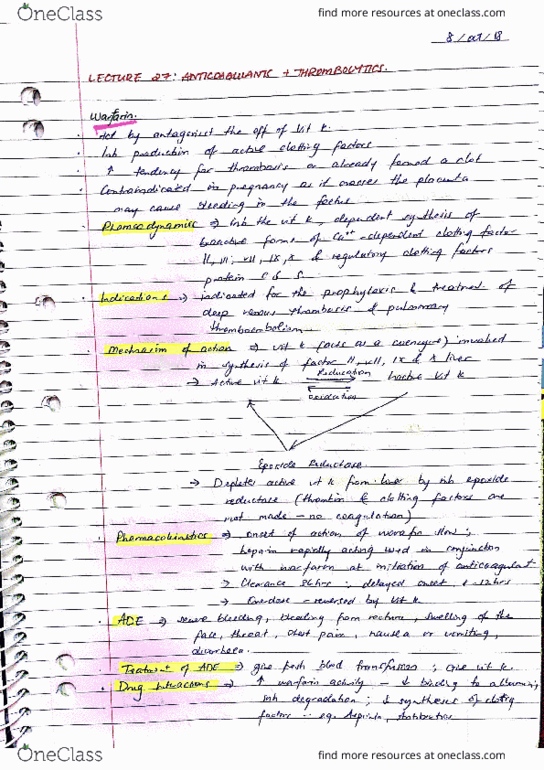 OneClass
find more resources at oneclass.com
8/oct/18
LECTURE 27: ANTICOAGULANTS + THROMBOLYTICS.
Warfarin.
Act by antagonist the eff of Vit K.
Inh production of active clotting factors
↑ tendency for thrombosis or already formed a clot
Contraindicated in pregnancy as it crosses the placenta
may cause bleeding in the foetus
Pharmacodynamics → inh the vit K, dependent synthesis of
inactive forms of Ca²⁺-dependent clotting factor
II, VII, IX, X & regulatory clotting factors
protein C & S
Indications → indicated for the prophylaxis & treatment of
deep venous thrombosis & pulmonary
thromboembolism
Mechanism of action → vit K (acts as a coenzyme) involved
in synthesis of factor II, VII, IX & X liver
→ Active vit K Reduction Inactive Vit K
oxidation
Epoxide Reductase
→ Depletes active vit K from liver by inh epoxide
reductase (thrombin & clotting factors are
not made - no coagulation)
Pharmacokinetics → onset of action of warfarin slow;
heparin rapidly acting used in conjunction
with warfarin at initiation of anticoagulant
→ Clearance 36hrs; delayed onset 8-12hrs
→ Overdose - reversed by Vit K
ADE → severe bleeding, bleeding from rectum, swelling of the
face, throat, chest pain, nausea or vomiting,
diarrhoea.
Treatment of ADE → give fresh blood transfusion; Give vit K.
Drug Interactions → ↑ warfarin activity - ↓ binding to albumin;
inh degradation; ↓ synthesis of clotting
factors eg. Aspirin, antibiotics
OneClass
find more resources at oneclass.com